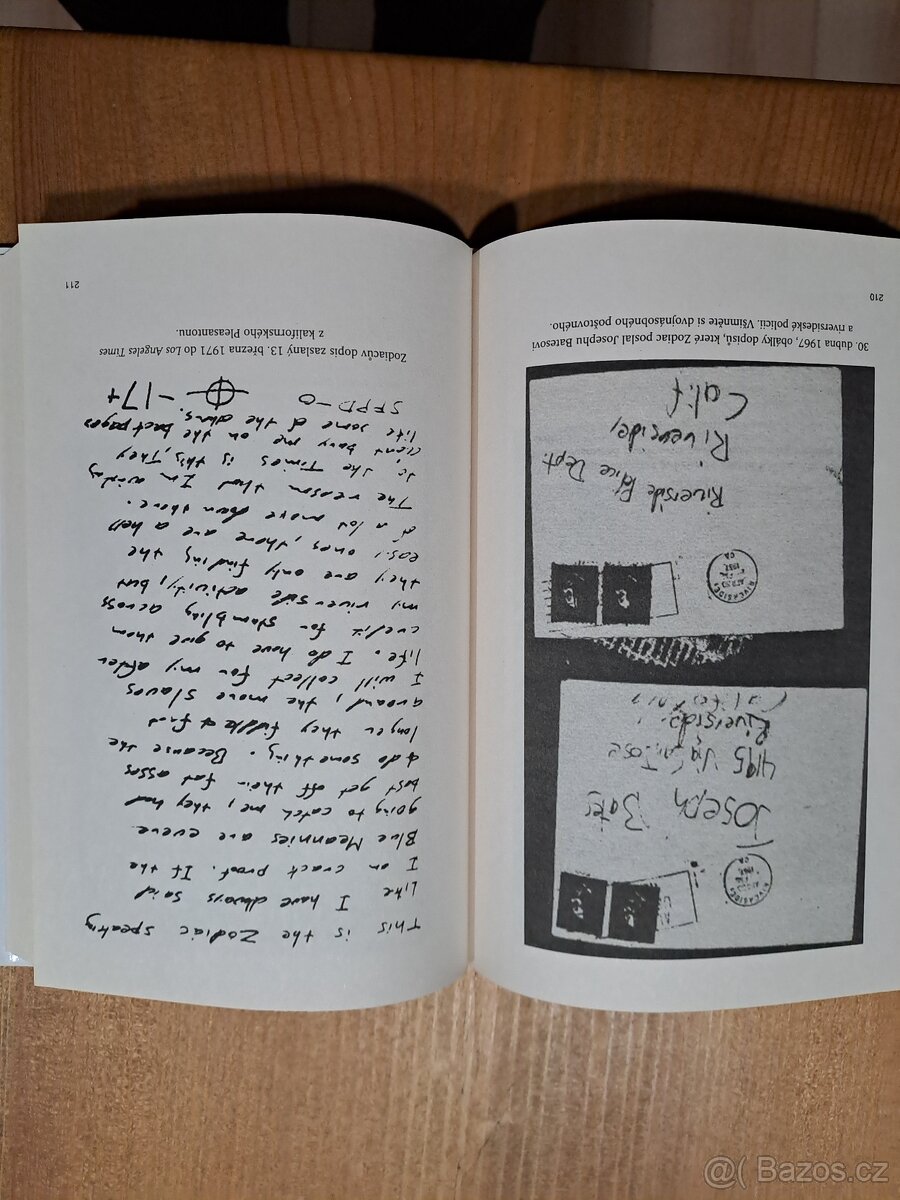 Joseph Bates
4195 Via San Jose
Riverside,
California
RIVERSIDE
CA
Riverside Police Dept.
Riverside,
Calif
RIVERSIDE
CA
30. dubna 1967, obálky dopisů, které Zodiac poslal Josephu Batesovi
a riversideské policii. Všimněte si dvojnásobného poštovného.
210
This is the Zodiac speaking
Like I have always said
I am crack proof. If the
Blue Meannies are evere
going to catch me, they had
best get off their fat asses
& do something. Because the
longer they fiddle & fart
around, the more slaves
I will collect for my after
life. I do have to give them
credit for stumbling across
my riverside activity, but
they are only finding the
easy ones, there are a hell
of a lot more down there.
The reason that Im writing
to the Times is this, They
dont bury me on the back pages
like some of the others.
SFPD-0 -17+
Zodiacův dopis zaslaný 13. března 1971 do Los Angeles Times
z kalifornského Pleasantonu.
211
@( Bazos.cz